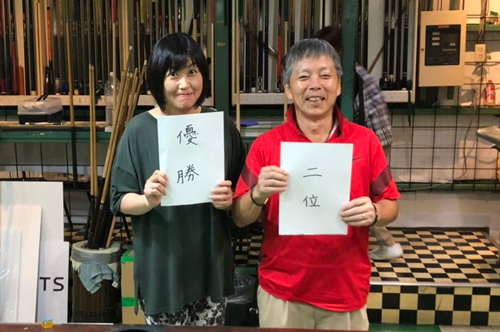 優勝
二位
TS